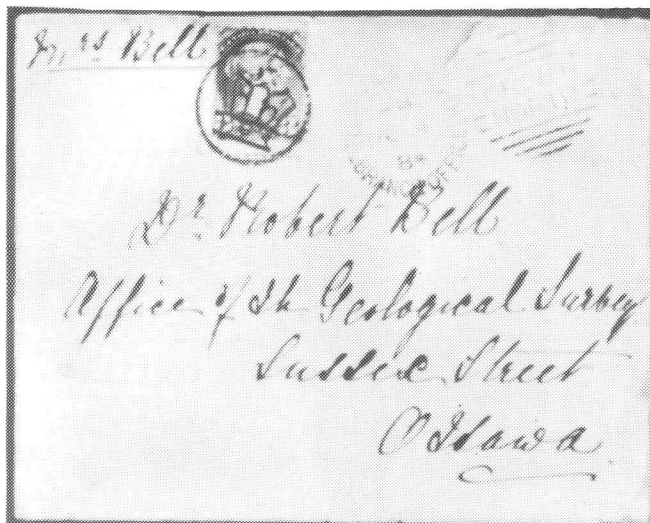 Mrs Bell
Dr. Robert Bell
Office of Th Geological Survey
Sussex Street
Ottawa